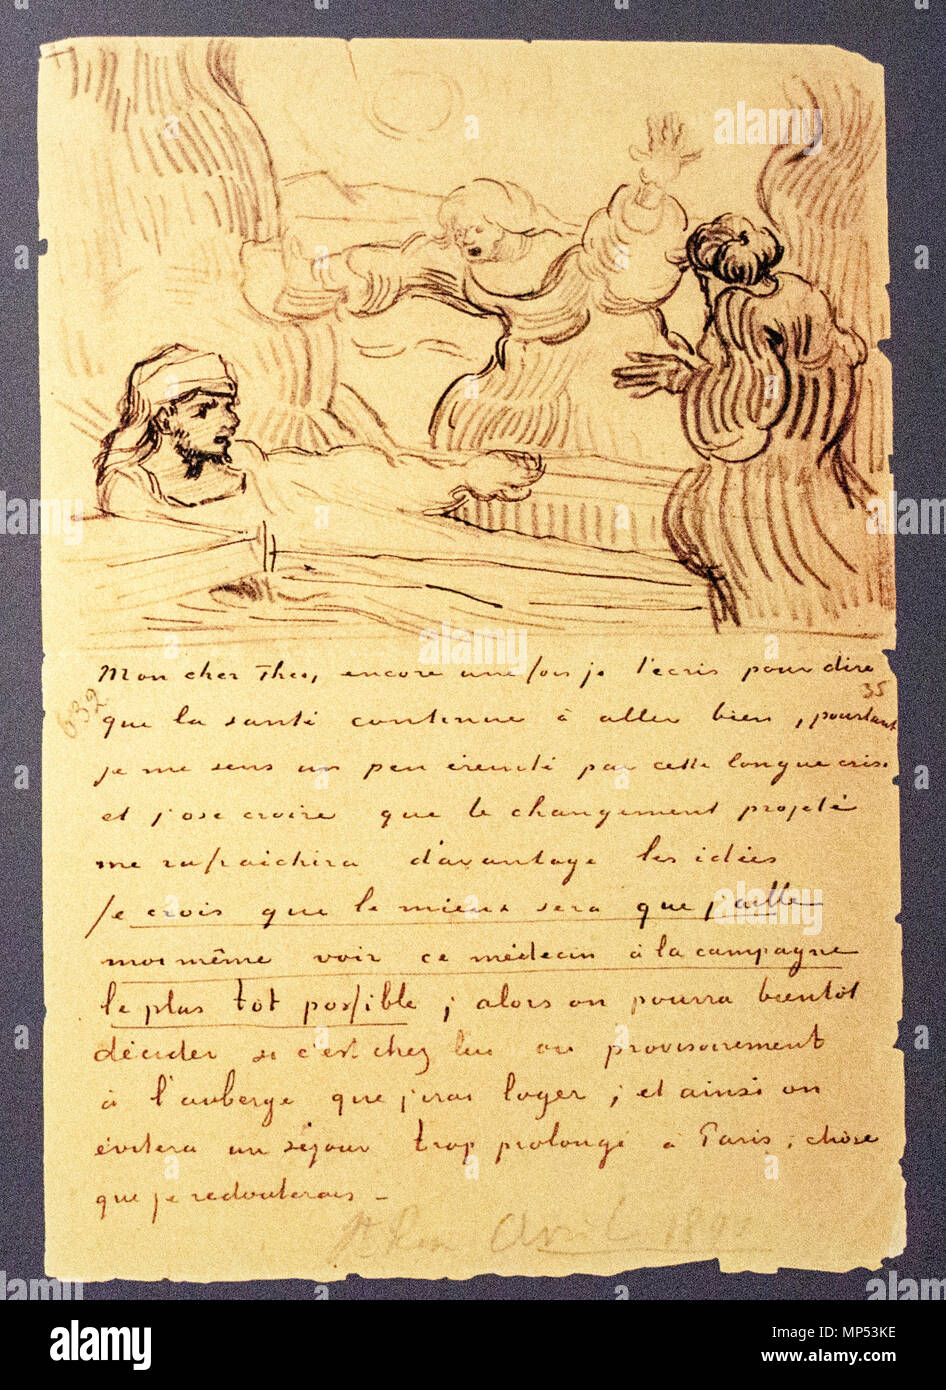 Mon cher Theo, encore une fois je t'écris pour dire
632
35
que la santé continue à aller bien, pourtant
je me sens un peu éreinté par cette longue crise
et j'ose croire que le changement projeté
me rafraichira d'avantage les idées
Je crois que le mieux sera que j'aille
moi même voir ce médecin à la campagne
le plus tôt possible ; alors on pourra bientôt
décider si c'est chez lui ou provisoirement
à l'auberge que j'irai loger ; et ainsi on
évitera un séjour trop prolongé à Paris, chose
que je redouterais –
St Rem Avril 1890
alamy
Image ID: MP53KE
www.alamy.com